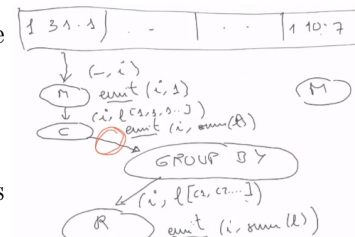 1 3 1 · 1 · · 1 10 · 7
(-, i)
M emit (i, 1) M
(i, l[1,1,1..])
C emit (i, sum(l))
GROUP BY
(i, l[c1, c2....])
R emit (i, sum(l))